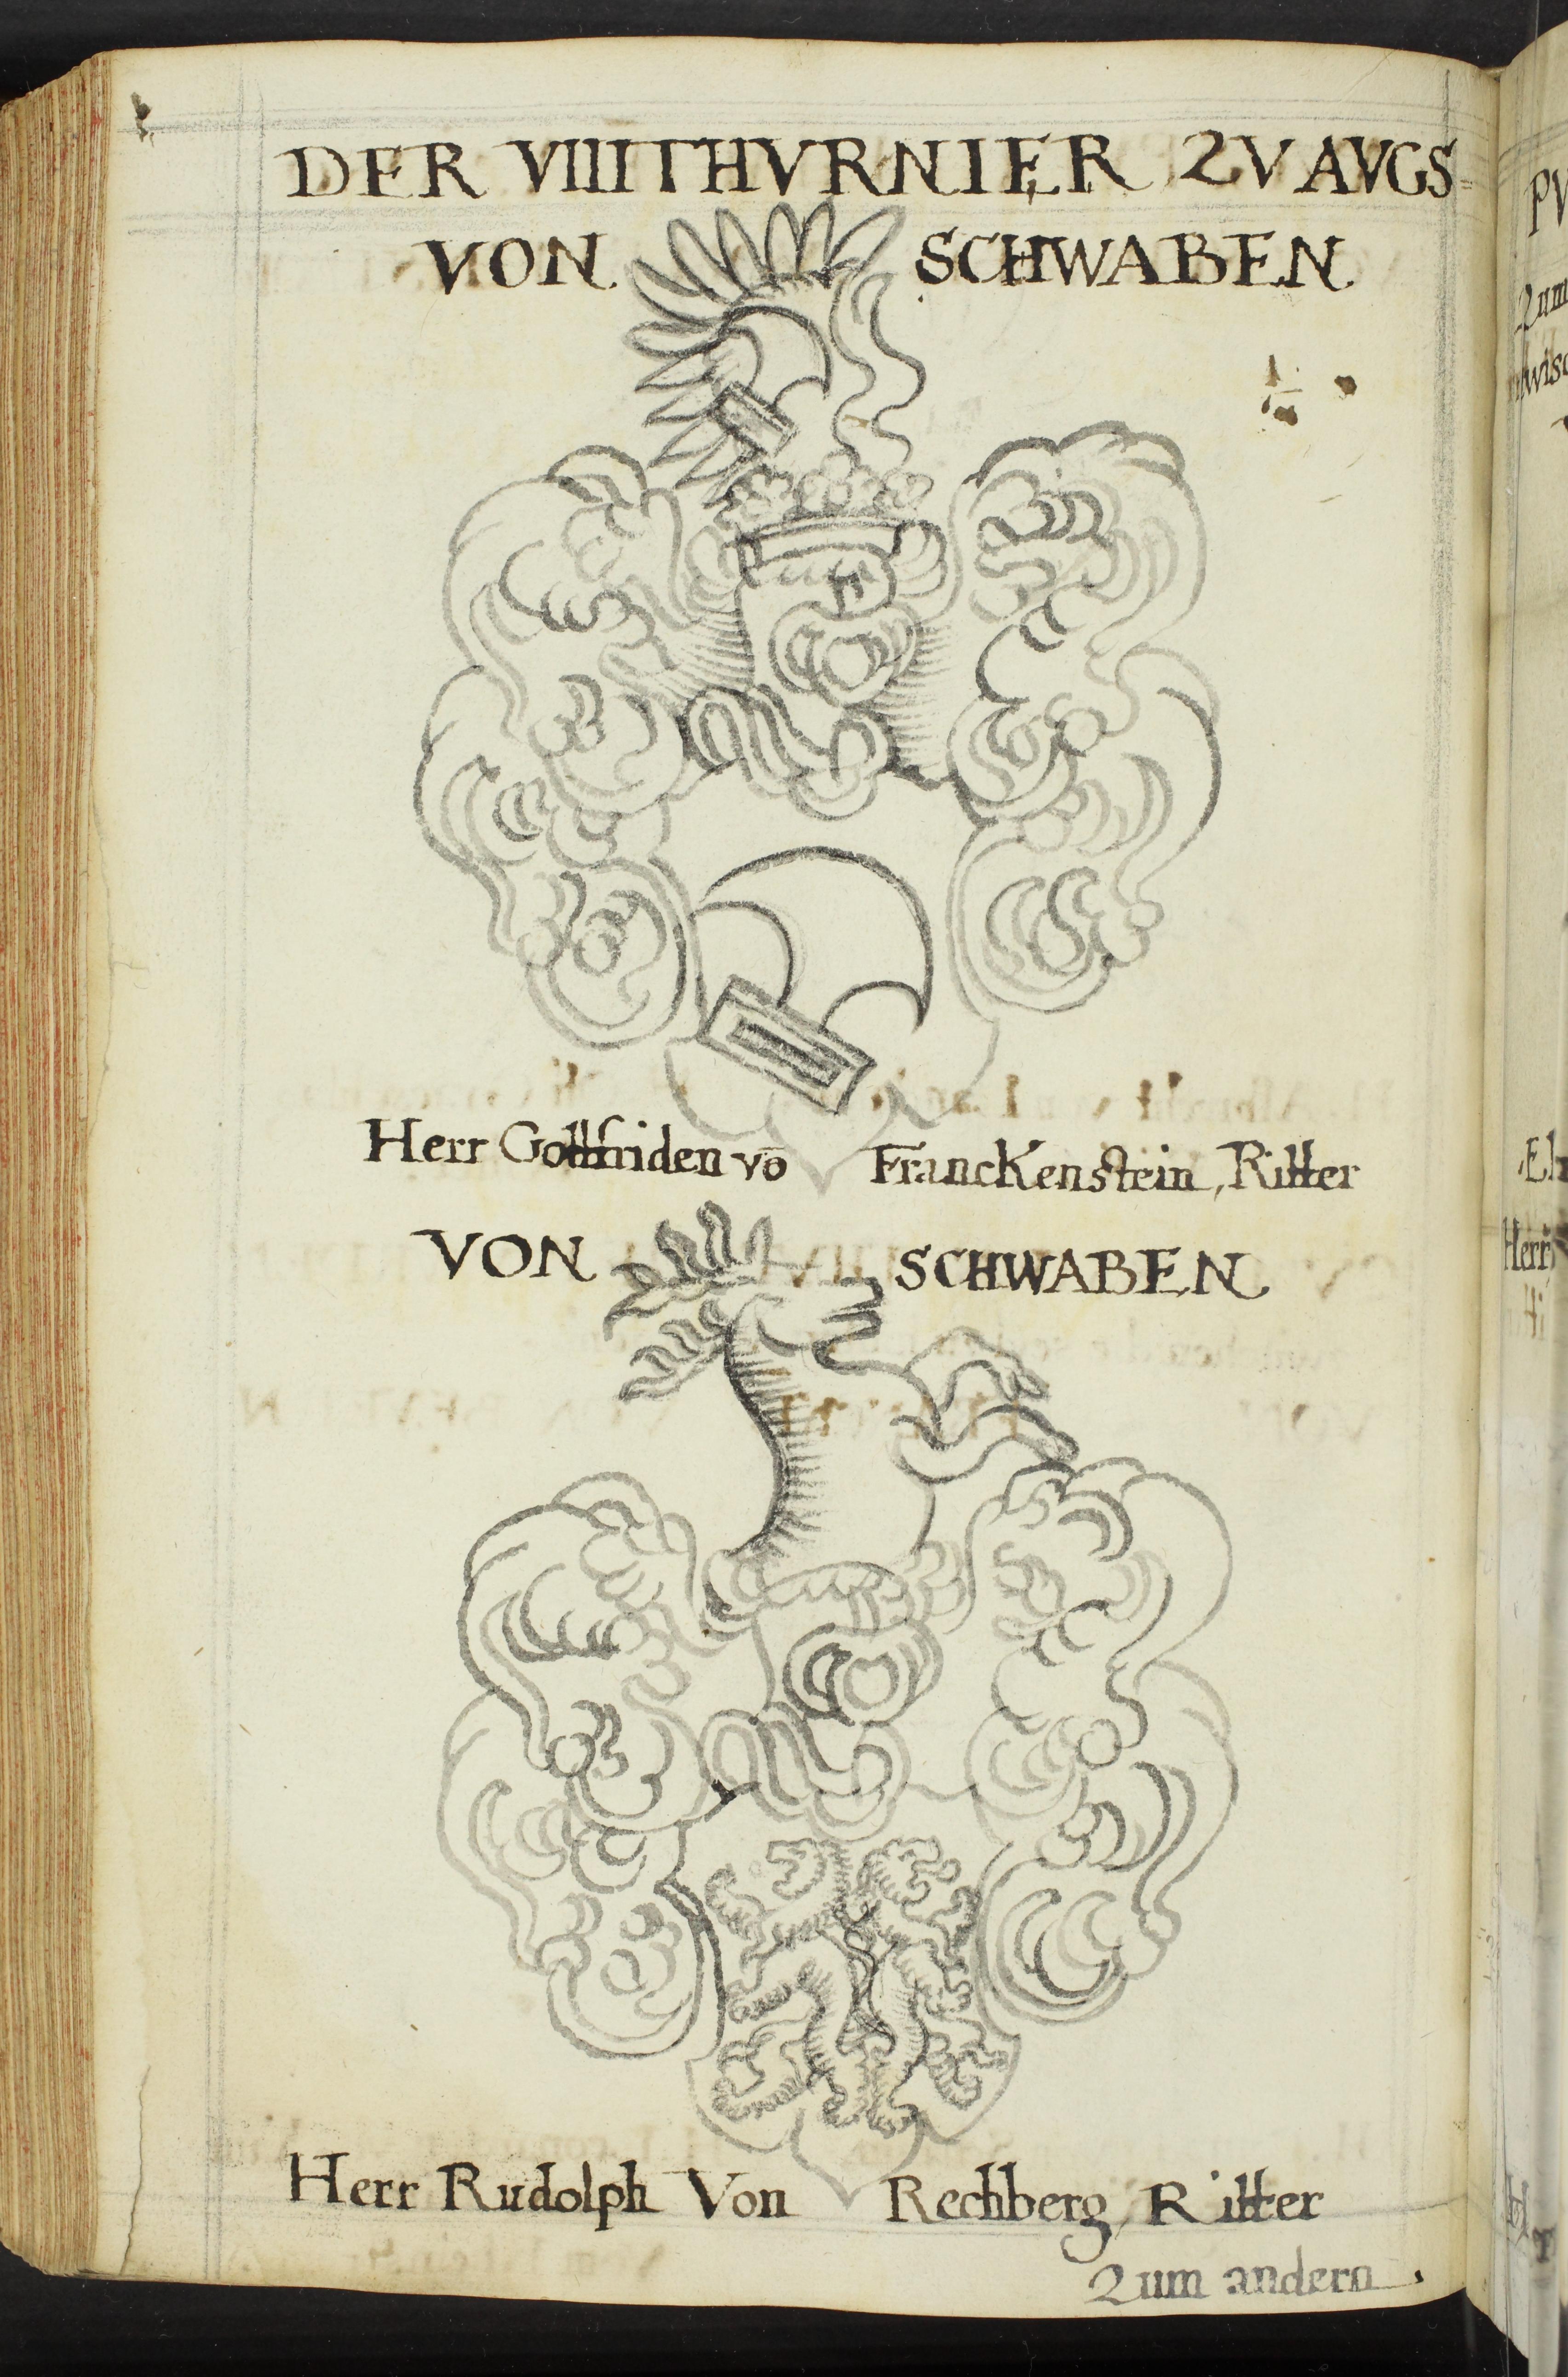 DER VIIII THVRNIER ZV AVGS=
VON SCHWABEN
Herr Gottfriden vō Franckenstein, Ritter
VON SCHWABEN
Herr Rudolph Von Rechberg, Ritter
Zum andern
PV
Zum
Herr